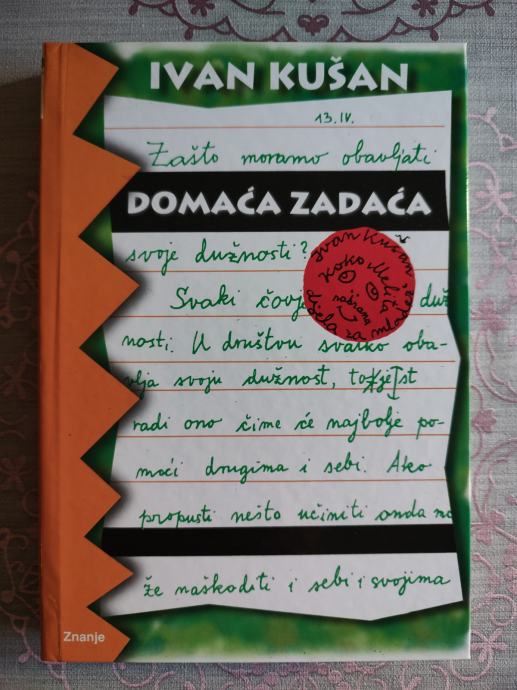 IVAN KUŠAN
13. IV.
Zašto moramo obavljati
DOMAĆA ZADAĆA
svoje dužnosti?
Ivan Kušan,
Koko Melita
načrana
djela za mladež
Svaki čovj duž
nosti. U društvu svatko oba-
vlja svoju dužnost, to jest
radi ono čime će najbolje po-
moći drugima i sebi. Ako
propusti nešto učiniti onda mo
že naškoditi i sebi i svojima
Znanje